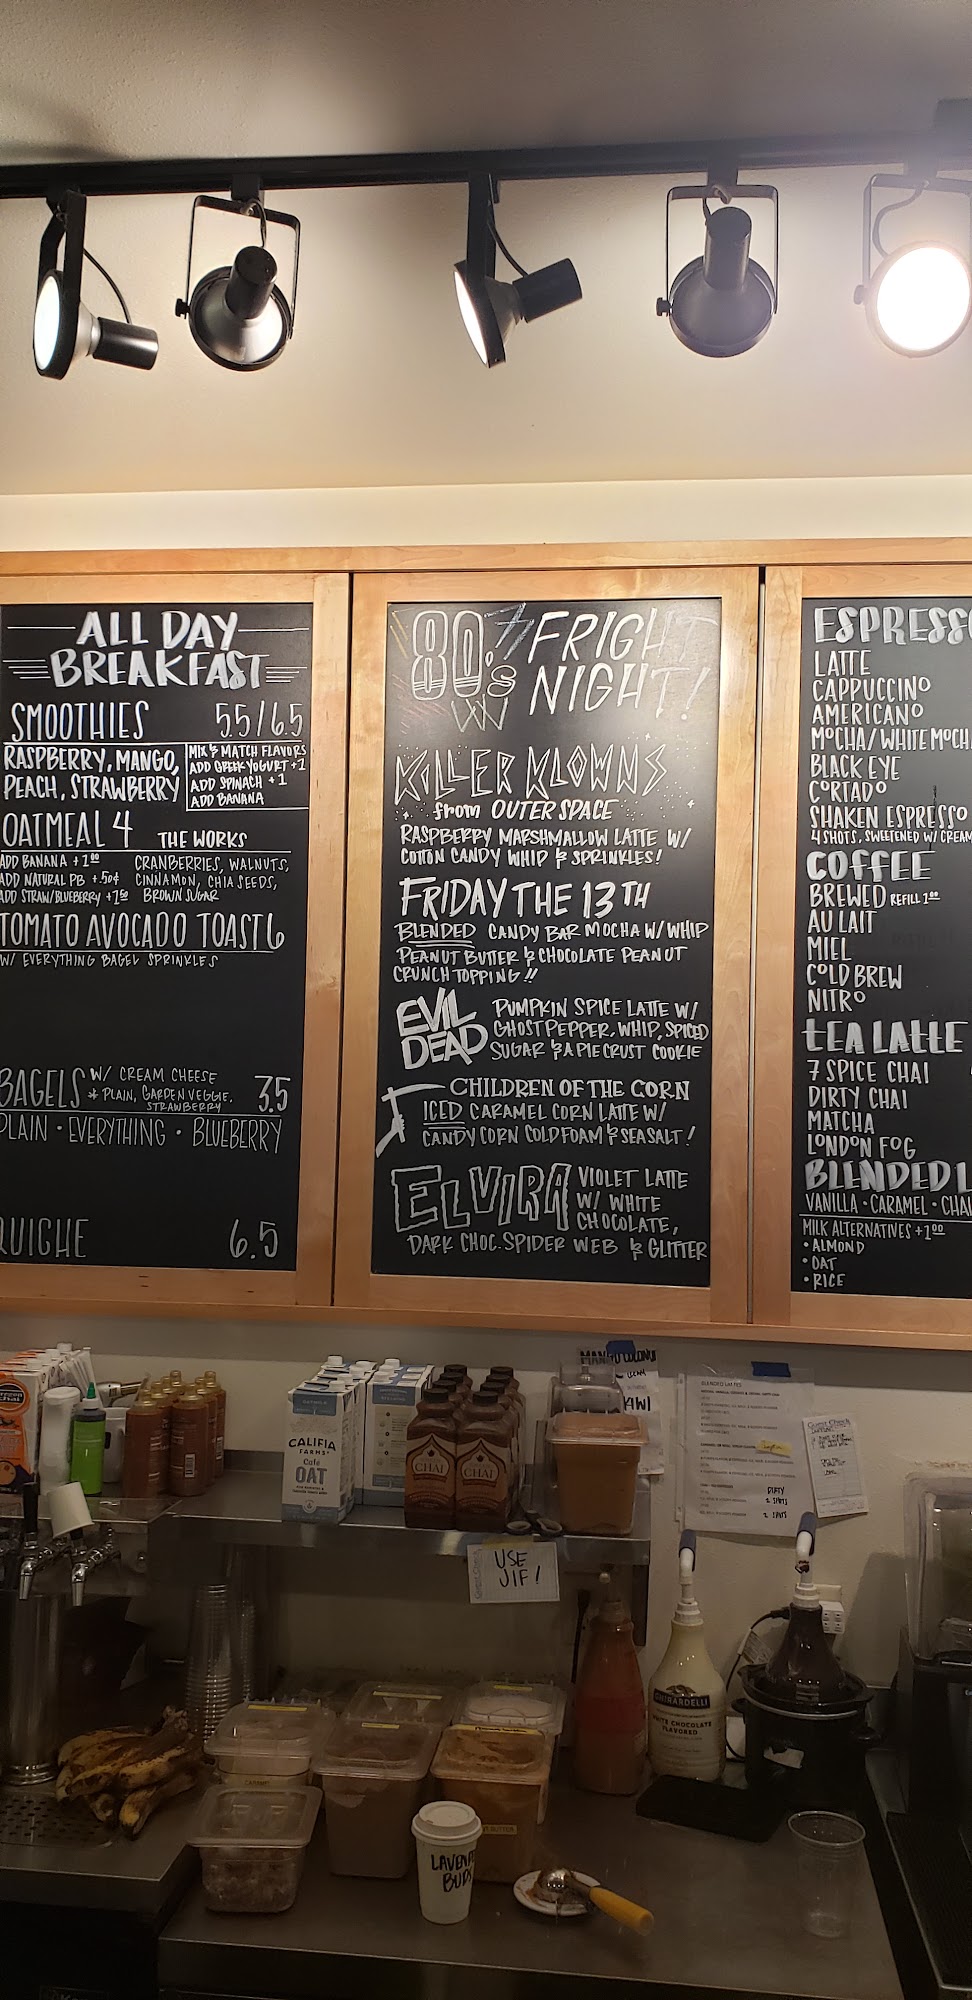 ALL DAY
BREAKFAST
SMOOTHIES 5.5/6.5
RASPBERRY, MANGO,
PEACH, STRAWBERRY
MIX & MATCH FLAVORS
ADD GREEK YOGURT +1
ADD SPINACH +1
ADD BANANA
OATMEAL 4 THE WORKS
ADD BANANA +1.00
ADD NATURAL PB +.50¢
ADD STRAW/BLUEBERRY +1.50
CRANBERRIES, WALNUTS,
CINNAMON, CHIA SEEDS,
BROWN SUGAR
TOMATO AVOCADO TOAST 6
W/ EVERYTHING BAGEL SPRINKLES
BAGELS W/ CREAM CHEESE 3.5
* PLAIN, GARDEN VEGGIE,
STRAWBERRY
PLAIN · EVERYTHING · BLUEBERRY
QUICHE 6.5
80's FRIGHT
NIGHT!
KILLER KLOWNS
from OUTER SPACE
RASPBERRY MARSHMALLOW LATTE W/
COTTON CANDY WHIP & SPRINKLES!
FRIDAY THE 13TH
BLENDED CANDY BAR MOCHA W/ WHIP
PEANUT BUTTER & CHOCOLATE PEANUT
CRUNCH TOPPING!!
EVIL
DEAD
PUMPKIN SPICE LATTE W/
GHOST PEPPER, WHIP, SPICED
SUGAR & A PIE CRUST COOKIE
CHILDREN OF THE CORN
ICED CARAMEL CORN LATTE W/
CANDY CORN COLD FOAM & SEA SALT!
ELVIRA VIOLET LATTE
W/ WHITE
CHOCOLATE,
DARK CHOC. SPIDER WEB & GLITTER
ESPRESSO
LATTE
CAPPUCCINO
AMERICANO
MOCHA/WHITE MOCHA
BLACK EYE
CORTADO
SHAKEN ESPRESSO
4 SHOTS, SWEETENED W/ CREAM
COFFEE
BREWED REFILL 1.00
AU LAIT
MIEL
COLD BREW
NITRO
TEA LATTE
7 SPICE CHAI
DIRTY CHAI
MATCHA
LONDON FOG
BLENDED L
VANILLA · CARAMEL · CHAI
MILK ALTERNATIVES +1.00
• ALMOND
• OAT
• RICE
CALIFIA
FARMS
Café
OAT
CHAI
CHAI
KIWI
BLENDED LATTES
DIRTY
2 SHOTS
2 SHOTS
Guest Check
USE
JIF!
GHIRARDELLI
WHITE CHOCOLATE
FLAVORED
CARAMEL
BUTTER
LAVENDER
BUDS